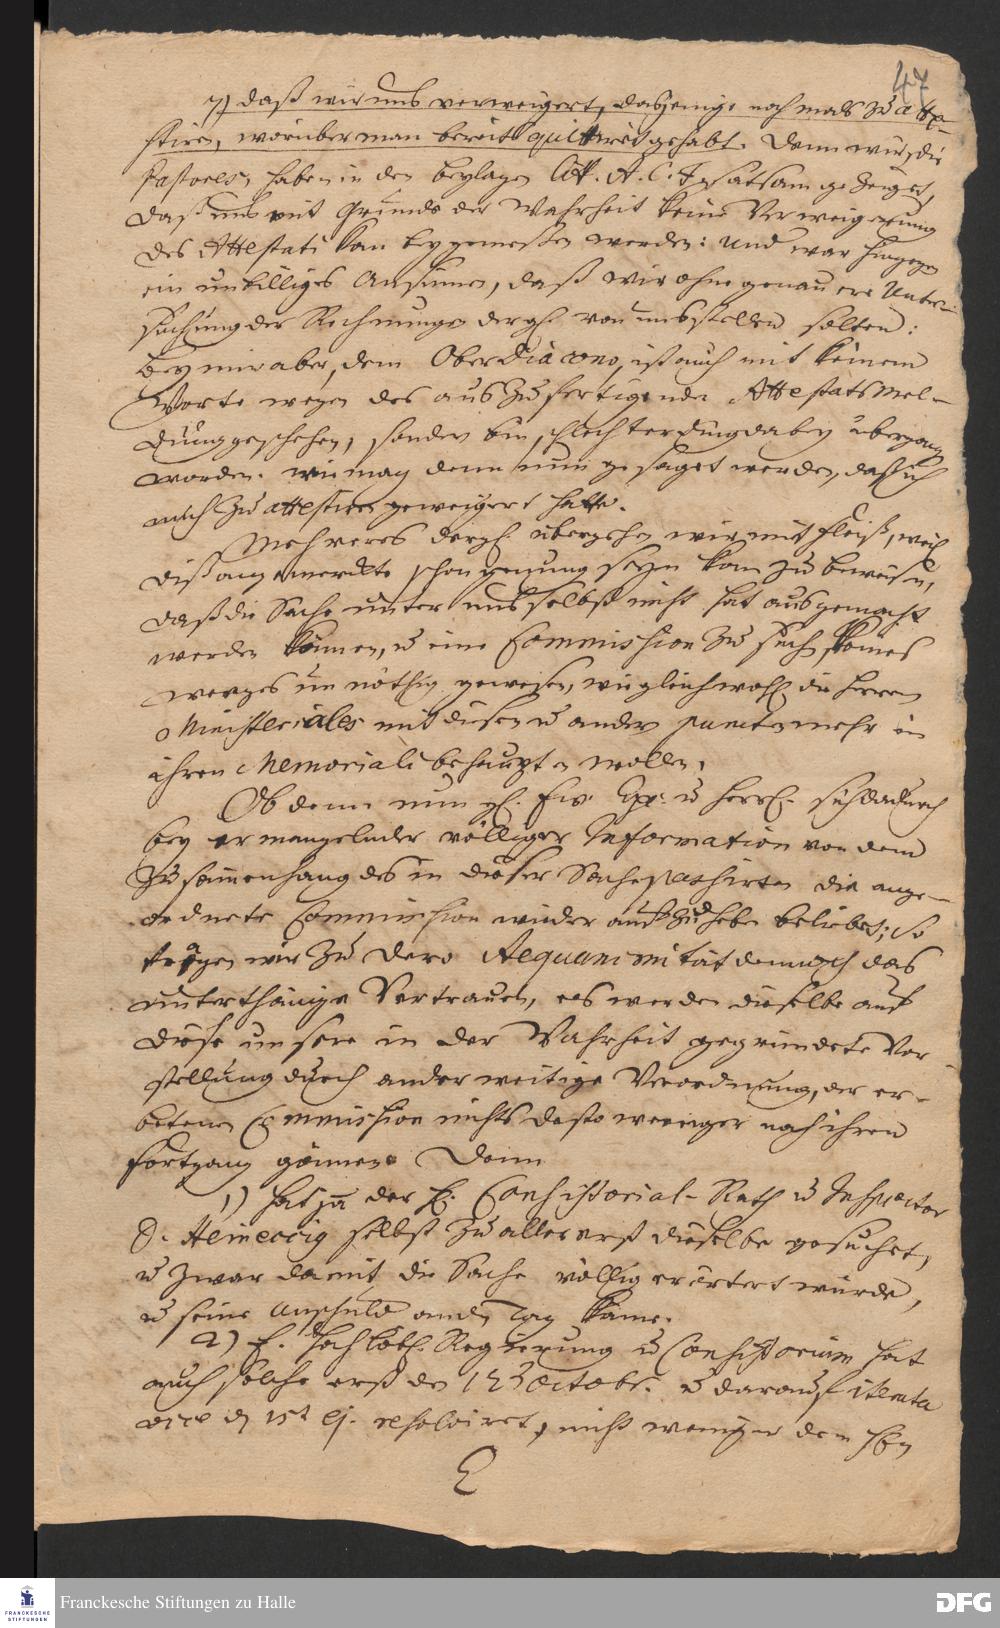 47
7) daß wir uns verweigert, dasjenige nochmals zu atte-
stiren, worüber man bereits quittiret gehabt. Denn wir, die
Pastores, haben in den beylagen Litt. A. C. F. satsam gezeiget,
daß uns mit Grunde der Wahrheit keine Verweigerung
des Attestati kan beygemeßen werden: und war hingegen
ein unbilliges Ansinnen, daß wir ohne genauere Unter-
suchung der Rechnunge dergl. von uns stellen solten:
Bey mir aber, dem Ober Diacono, ist auch mit keinem
Worte wegen des auszufertigenden Attestats Mel-
dung geschehen, sondern bin schlechterdings dabey übergangen
worden. wie mag denn nun gesaget werden, daß ich
mich zu attestiren geweigert hätte.
Mehreres dergl. übergehen wir mit Fleiß, weil
dis angemerckte schon genung seyn kan zu beweisen,
daß die Sache unter uns selbst nicht hat ausgemacht
werden können, u eine Commission zu suchen keines
weges unnöthig gewesen, wie gleichwohl die Herren
Ministeriales mit diesen u andern puncten mehr in
ihren Memoriali behaupten wollen.
Ob denn nun gl. Ew. Exc. u Herrl. sich dadurch
bey ermangelnder völliger Information von dem
Zusammenhang des in dieser Sache passirten die ange-
ordnete Commission wieder aufzuheben beliebet; So
tragen wir zu Dero Aequanimität dennoch das
unterthänige Vertrauen, es werden dieselbe auf
diese unsere in der Wahrheit gegründete Vor-
stellung durch anderweitige Verordnung, der er-
betenen Commission nichts desto weniger nach ihren
Fortgang gönnen. Denn
1) hat ja der H. Consistorial-Rath u Inspector
D. Heineccig selbst zu allererst dieselbe gesuchet,
u zwar damit die Sache völlig erörtert würde,
u seine Unschuld an den Tag käme.
2) E. Hochlöbl. Regierung u Consistorium hat
auch solche erst den 12 Octobr. u darauf iterata
vice d 15t ej. resolviret, nicht weniger dem Hn